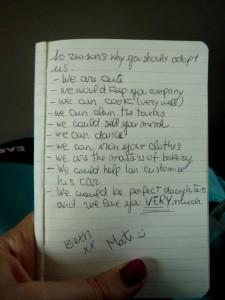 10 reasons why you should adopt
us -
- We are cute
- we would keep you company
- we can cook (very well)
- we can clean the
- we could sell your merch
- we can dance
- we can your clothes
- we are the masters of bakery
- We could help Ian customise
his car
- We would be perfect daughters
and we love you VERY much
Beth
xx Mati